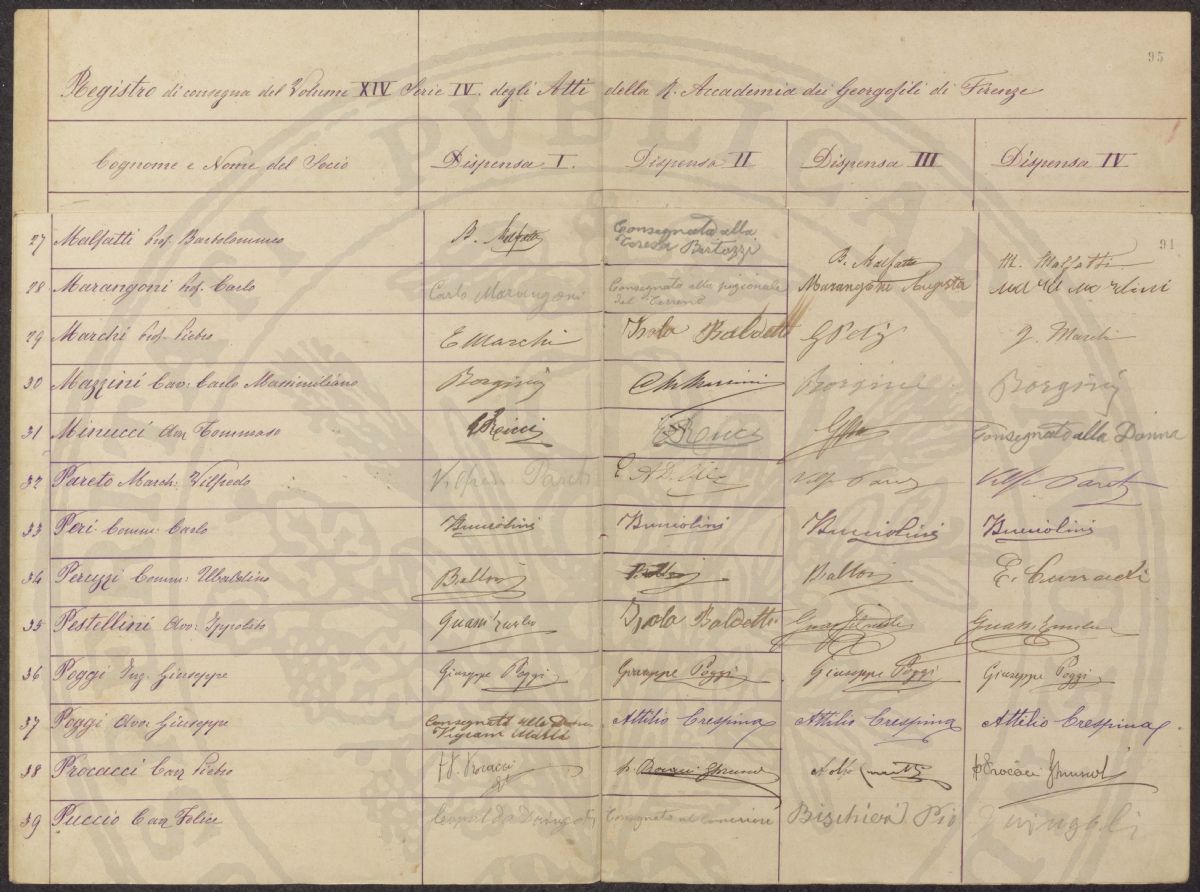 95
Registro di consegna del Volume XIV Serie IV. degli Atti della R. Accademia dei Georgofili di Firenze
Cognome e Nome del Socio Dispensa I. Dispensa II Dispensa III Dispensa IV
91
27 Malfatti Prof. Bartolommeo B. Malfatti Consegnata alla Teresa Bertozzi B. Malfatti M. Malfatti
28 Marangoni Prof. Carlo Carlo Marangoni Consegnato alla pigionale del Terreno Marangoni Augusta
29 Marchi Prof. Pietro E Marchi Isola Baldetti
30 Mazzini Cav: Carlo Massimiliano Borgini Borgini Borgini
31 Minucci Avv Tommaso Ricci Ricci Consegnato alla Donna
32 Pareto March: Vilfredo
33 Peri Comm: Carlo Bucciolini Bucciolini Bucciolini Bucciolini
34 Peruzzi Comm: Ubaldino Balloni Balloni
35 Pestellini Avv: Ippolito Isola Baldetti
36 Poggi Ing. Giuseppe Giuseppe Poggi Giuseppe Poggi Giuseppe Poggi Giuseppe Poggi
37 Poggi Avv: Giuseppe Consegnata alla Donna Attilio Crespina Attilio Crespina Attilio Crespina
38 Procacci Cav Pietro P. Procacci
39 Puccio Cav Felice Consegnato al cameriere Bischieri Pio